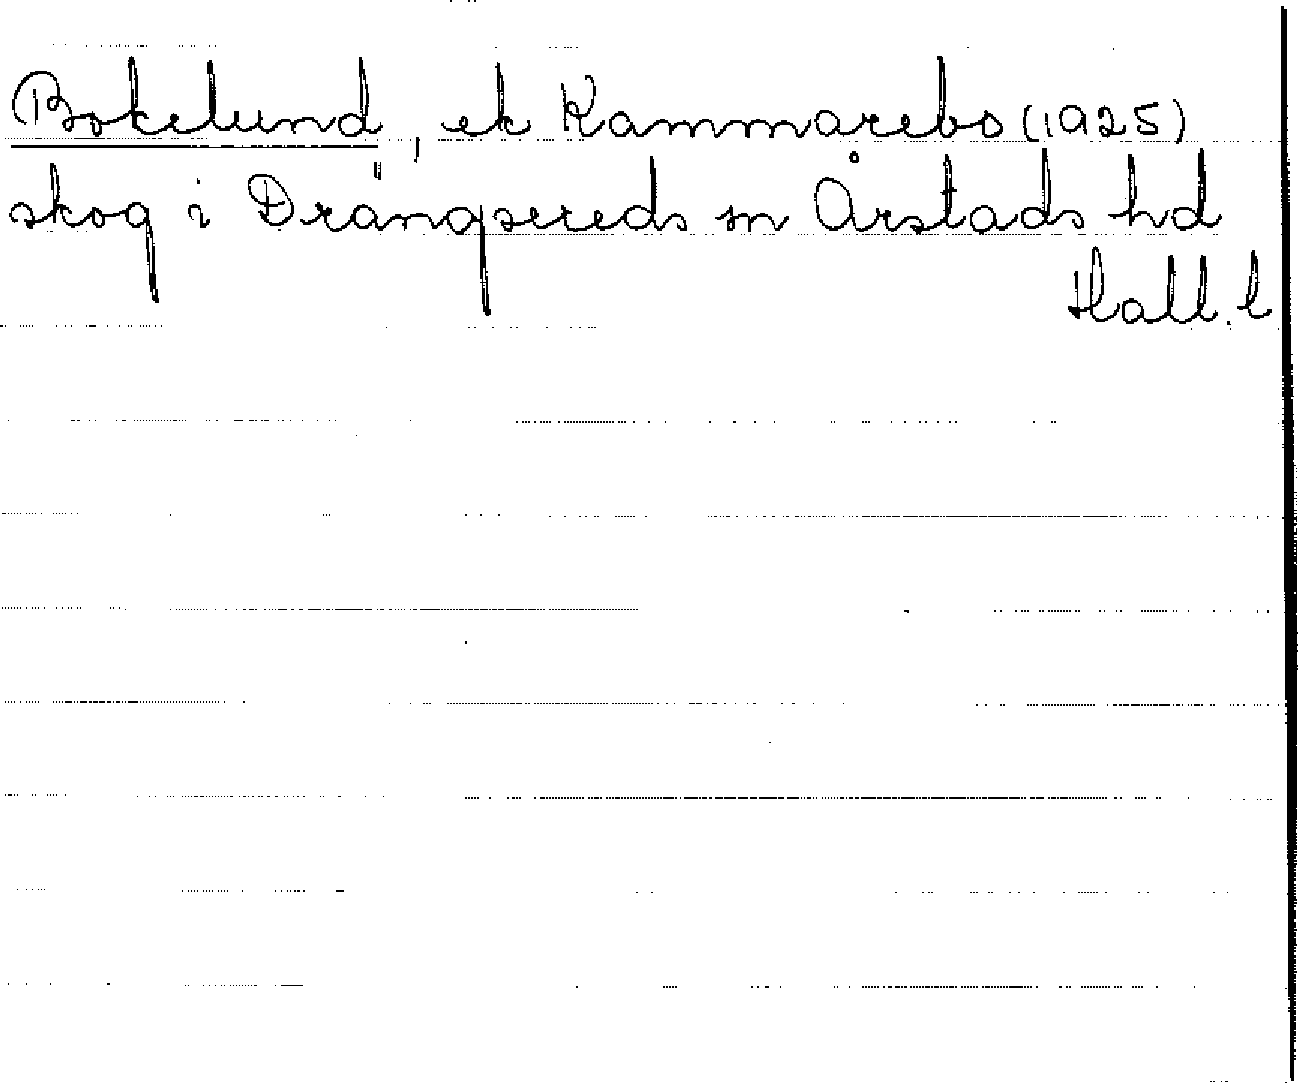 Bokelund, ek Kammarebo (1925)
skog i Drängsereds sn Årstads hd
Hall. l